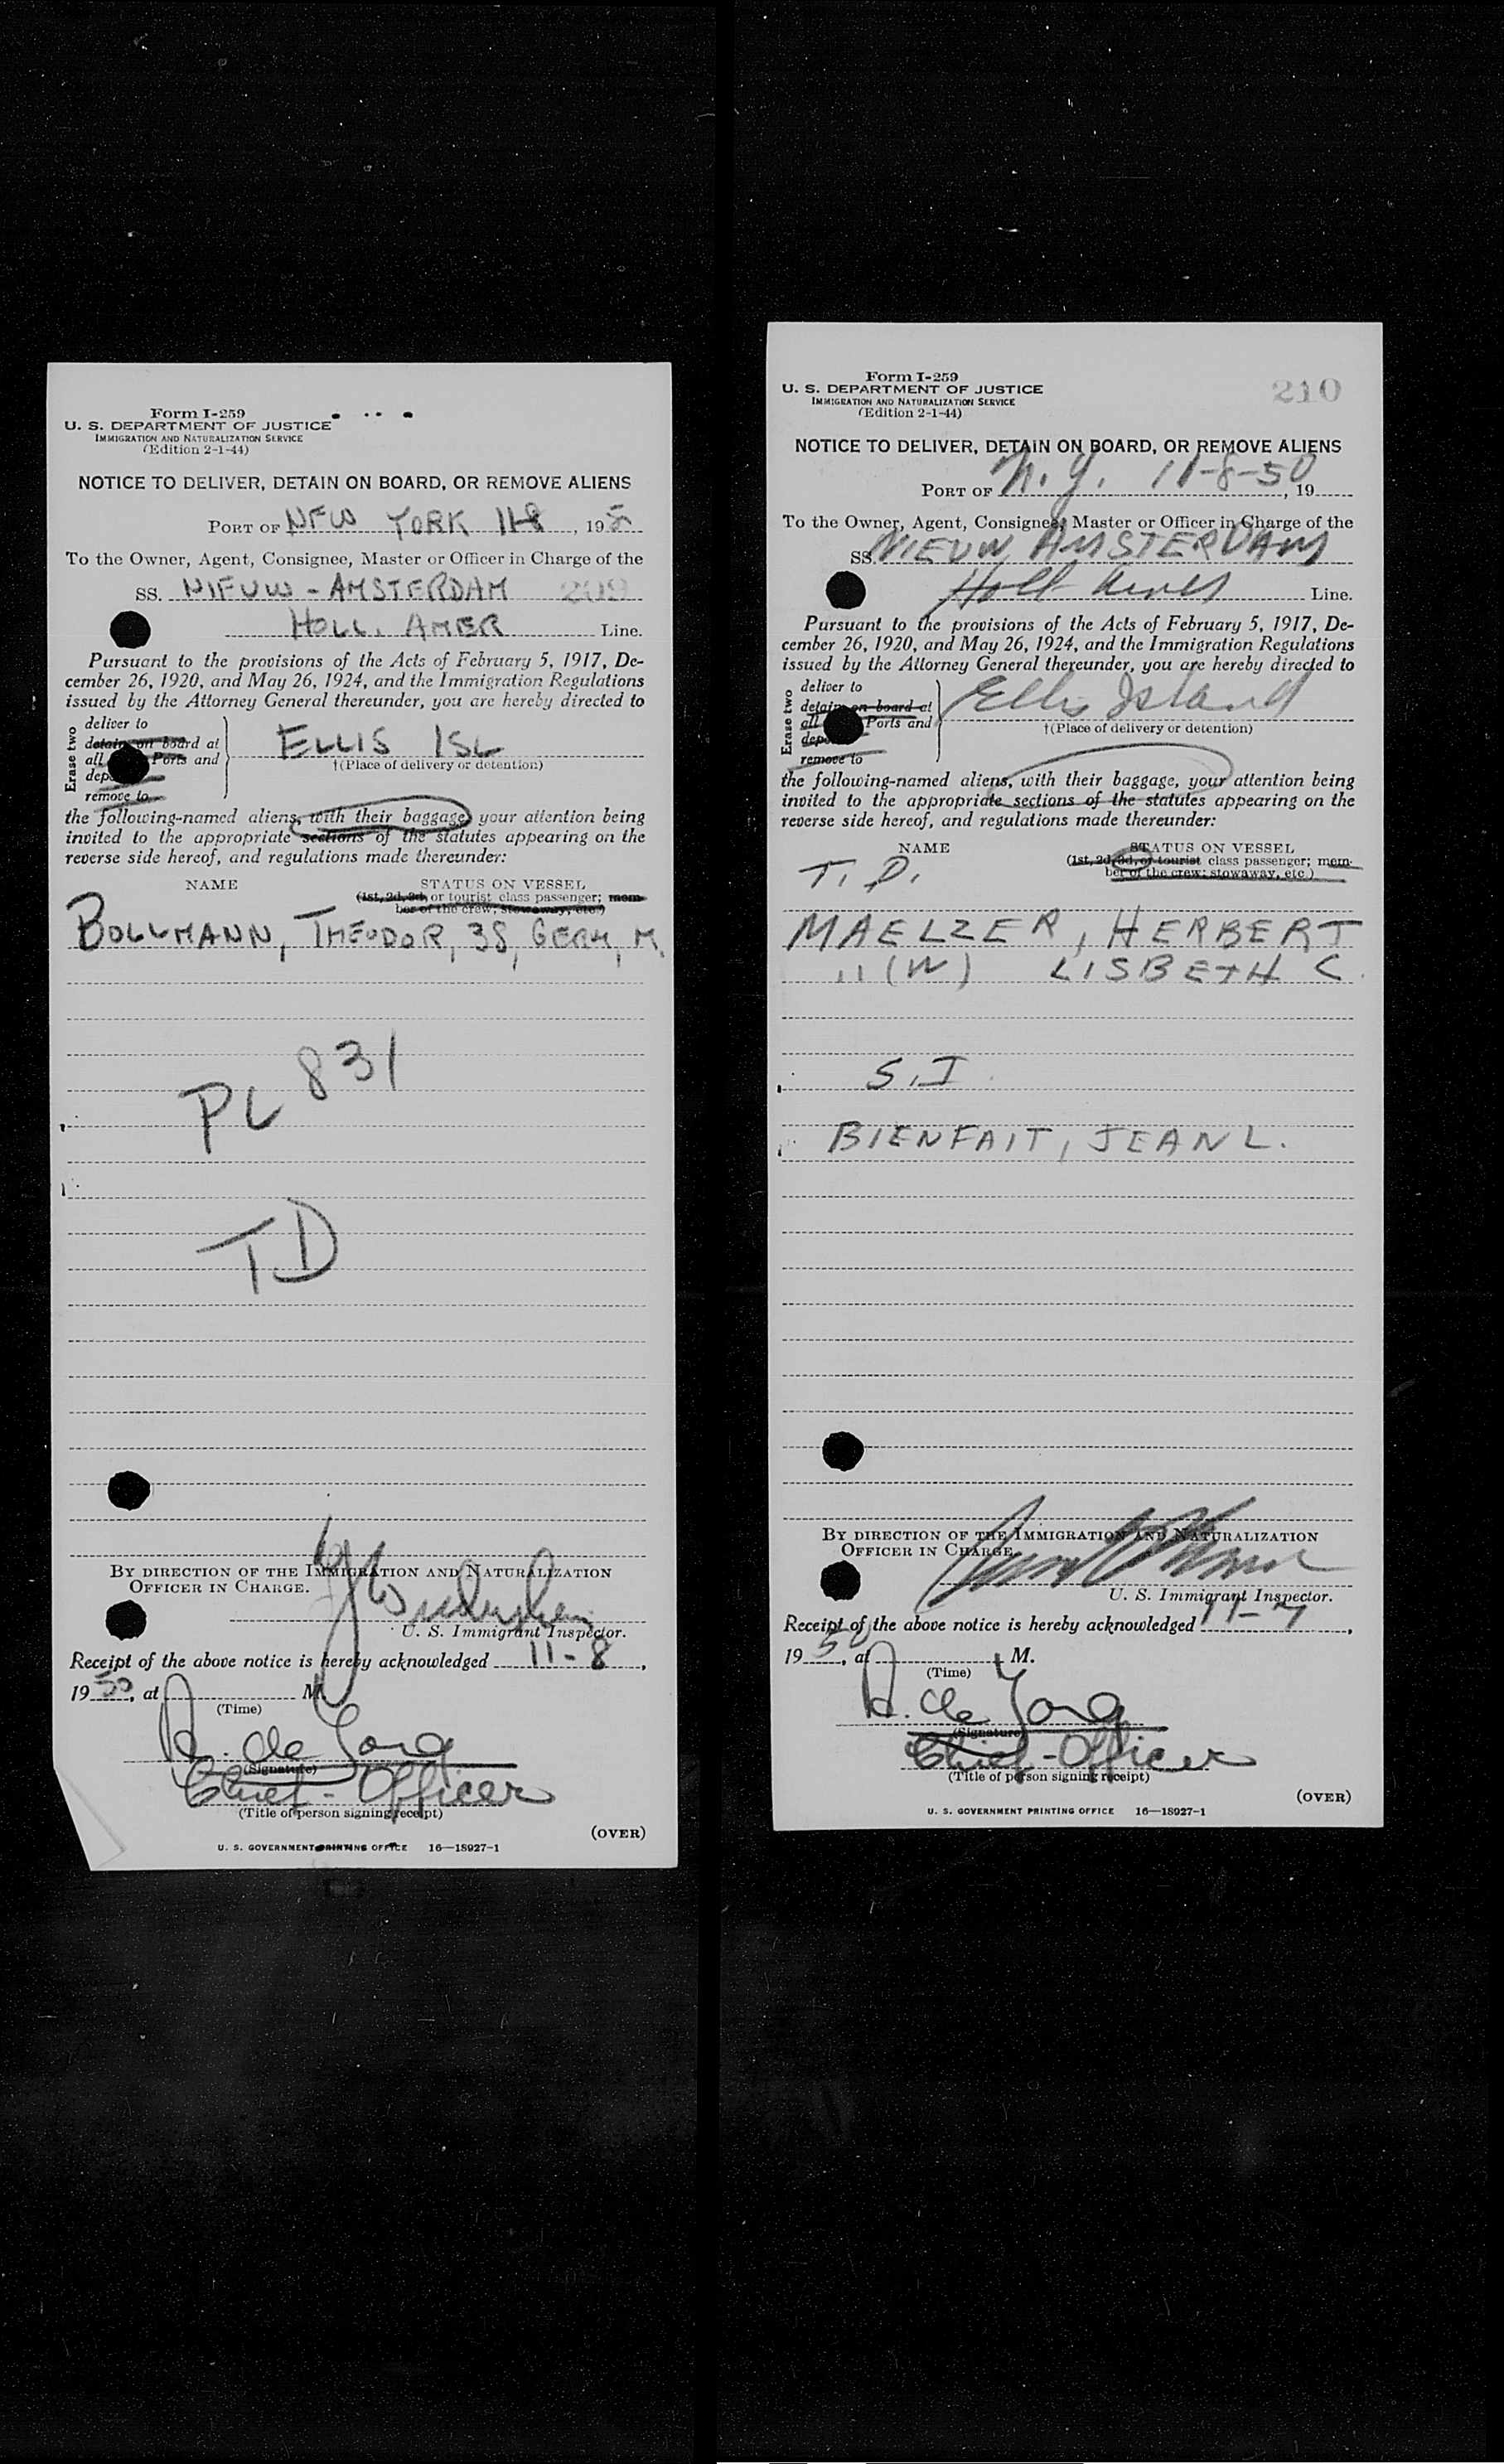 Form I-259
U. S. DEPARTMENT OF JUSTICE
IMMIGRATION AND NATURALIZATION SERVICE
(Edition 2-1-44)
NOTICE TO DELIVER, DETAIN ON BOARD, OR REMOVE ALIENS
PORT OF NEW YORK 11-8, 195
To the Owner, Agent, Consignee, Master or Officer in Charge of the
SS. NIEUW-AMSTERDAM 209
HOLL. AMER Line.
Pursuant to the provisions of the Acts of February 5, 1917, De-
cember 26, 1920, and May 26, 1924, and the Immigration Regulations
issued by the Attorney General thereunder, you are hereby directed to
Erase two
deliver to
detain on board at
all Ports and
remove to
ELLIS ISL
†(Place of delivery or detention)
the following-named aliens, with their baggage, your attention being
invited to the appropriate sections of the statutes appearing on the
reverse side hereof, and regulations made thereunder:
NAME STATUS ON VESSEL
(1st, 2d, 3d, or tourist class passenger; mem-
ber of the crew; stowaway, etc.)
BOLLMANN, THEODOR, 38, GERM, M.
PL 831
TD
BY DIRECTION OF THE IMMIGRATION AND NATURALIZATION
OFFICER IN CHARGE.
U. S. Immigrant Inspector.
Receipt of the above notice is hereby acknowledged 11-8,
1950, at M.
(Time)
A. de Jong
(Signature)
Chief-Officer
(Title of person signing receipt)
(OVER)
U. S. GOVERNMENT PRINTING OFFICE 16—18927-1
Form I-259
U. S. DEPARTMENT OF JUSTICE
IMMIGRATION AND NATURALIZATION SERVICE
(Edition 2-1-44)
210
NOTICE TO DELIVER, DETAIN ON BOARD, OR REMOVE ALIENS
PORT OF N.Y. 11-8-50, 19
To the Owner, Agent, Consignee, Master or Officer in Charge of the
SS. NIEUW AMSTERDAM
Holl Line.
Pursuant to the provisions of the Acts of February 5, 1917, De-
cember 26, 1920, and May 26, 1924, and the Immigration Regulations
issued by the Attorney General thereunder, you are hereby directed to
Erase two
deliver to
detain on board at
all Ports and
remove to
Ellis Island
†(Place of delivery or detention)
the following-named aliens, with their baggage, your attention being
invited to the appropriate sections of the statutes appearing on the
reverse side hereof, and regulations made thereunder:
NAME STATUS ON VESSEL
(1st, 2d, 3d, or tourist class passenger; mem-
ber of the crew; stowaway, etc.)
T. D.
MAELZER, HERBERT
" (W) LISBETH C.
S.I.
BIENFAIT, JEAN L.
BY DIRECTION OF THE IMMIGRATION AND NATURALIZATION
OFFICER IN CHARGE.
U. S. Immigrant Inspector.
Receipt of the above notice is hereby acknowledged 11-7,
1950, at M.
(Time)
A. de Jong
(Signature)
Chief-Officer
(Title of person signing receipt)
(OVER)
U. S. GOVERNMENT PRINTING OFFICE 16—18927-1